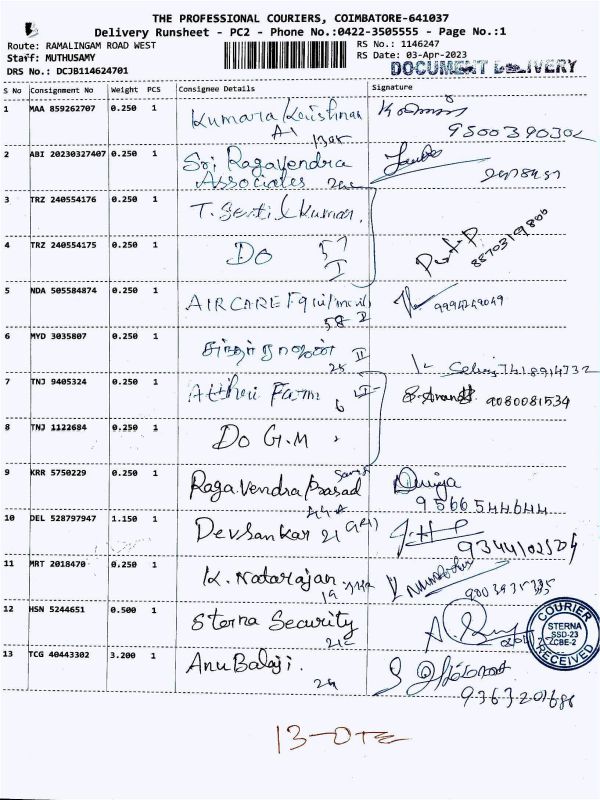 THE PROFESSIONAL COURIERS, COIMBATORE-641037
Delivery Runsheet - PC2 - Phone No.:0422-3505555 - Page No.:1
Route: RAMALINGAM ROAD WEST
Staff: MUTHUSAMY
DRS No.: DCJB114624701
RS No.: 1146247
RS Date: 03-Apr-2023
DOCUMENT DELIVERY
S No Consignment No Weight PCS Consignee Details Signature
1 MAA 859262707 0.250 1 Kumara Krishnan
A1
9500390302
2 ABI 20230327407 0.250 1 Sri Ragavendra
Associates
3 TRZ 240554176 0.250 1 T. Sentil Kumar.
4 TRZ 240554175 0.250 1 Do 57
I
8870319806
5 NDA 505584874 0.250 1 AIRCARE
58 II
6 MYD 3035807 0.250 1
25 II
7418914732
7 TNJ 9405324 0.250 1 Farm
6
9080081534
8 TNJ 1122684 0.250 1 Do G.M
9 KRR 5750229 0.250 1 Ragavendra Prasad
9566544644
10 DEL 528797947 1.150 1 Devsankar 21
11 MRT 2018470 0.250 1 K. Natarajan
19
12 HSN 5244651 0.500 1 Sterna Security
212
COURIER
STERNA
SSD-23
CBE-2
RECEIVED
13 TCG 40443302 3.200 1 Anu Balaji.
9363201686
13-OTE